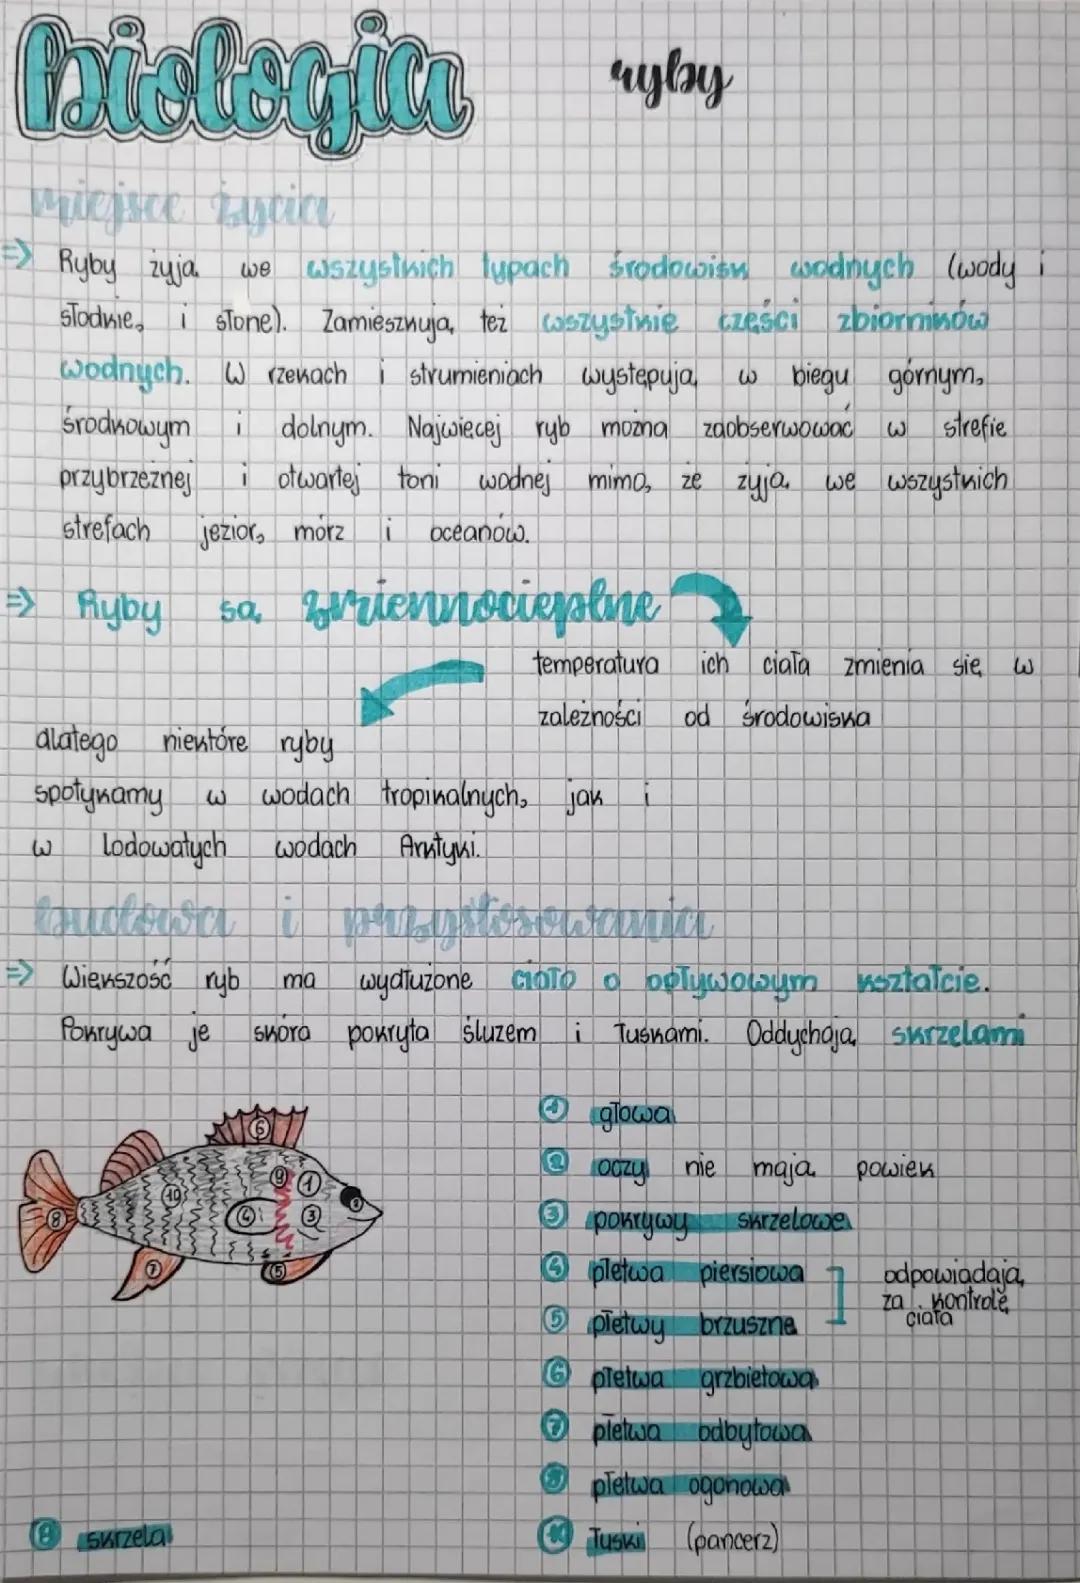 biologia
ryby
miejsce życia
=> Ryby żyją we wszystkich typach środowisk wodnych (wody i
słodkie, i słone). Zamieszkują też wszystkie części zbiorników
wodnych. W rzekach i strumieniach występują w biegu górnym,
środkowym i dolnym. Najwięcej ryb można zaobserwować w strefie
przybrzeżnej i otwartej toni wodnej mimo, że żyją we wszystkich
strefach jezior, mórz i oceanów.
=> Ryby są zmiennocieplne
temperatura ich ciała zmienia się w
zależności od środowiska
dlatego niektóre ryby
spotykamy w wodach tropikalnych, jak i
w lodowatych wodach Arktyki.
budowa i przystosowania
=> Większość ryb ma wydłużone ciało o opływowym kształcie.
Pokrywa je skóra pokryta śluzem i łuskami. Oddychają skrzelami
1 głowa
2 oczy nie mają powiek
3 pokrywy skrzelowe
4 płetwa piersiowa
5 płetwy brzuszne
odpowiadają
za kontrolę
ciała
6 płetwa grzbietowa
7 płetwa odbytowa
8 płetwa ogonowa
skrzela
10 łuski (pancerz)
6
9
1
10
4
3
2
8
7
5